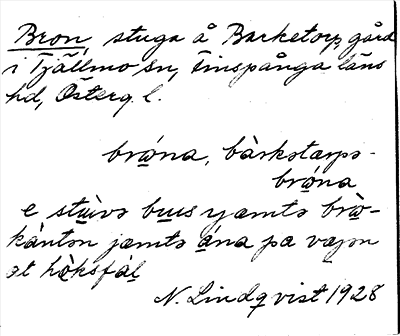 Bron, stuga å Barketorp gård
i Tjällmo sn, Finspånga läns
hd, Österg. l.
brὼna, bàrkətαrpə-
brὼna
e stu̲ìvə bu̲us jæmtə brὼ-
kàntən jæmtə á̲na pa væjən
ət hò̲ksfál̲
N. Lindqvist 1928